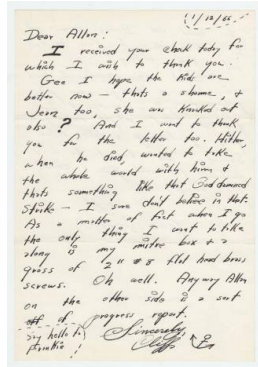 (1/12/66)
Dear Allan:
I received your check today for
which I wish to thank you.
Gee I hope the kids are
better now — thats a shame, &
Jerry too, she was knocked out
also? And I want to thank
you for the letter too. Hitler,
when he died, wanted to take
the whole world with him &
thats something like that God damned
Strike — I sure dont believe in that.
As a matter of fact when I go
the only thing I want to take
along is my mitre box & a
gross of 2" #8 flat head brass
screws. Oh well. Anyway Allan
on the other side is a sort
of progress report.
Sincerely,
Cliff
Say hello to